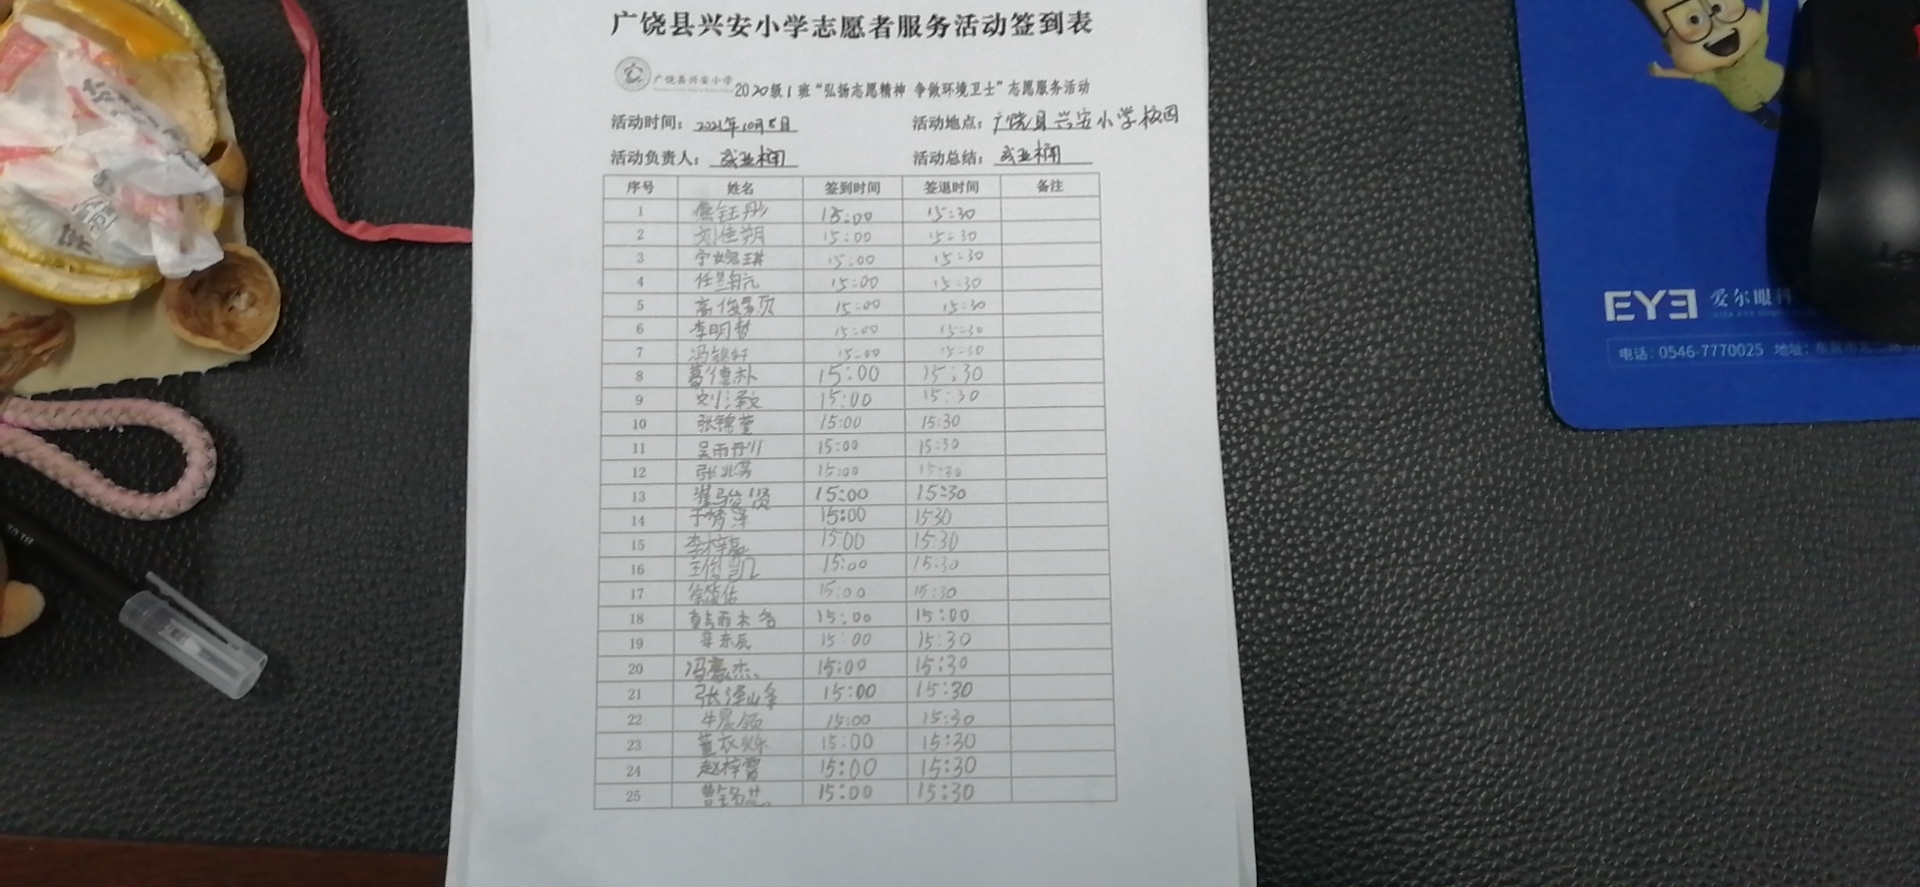 广饶县兴安小学志愿者服务活动签到表
广饶县兴安小学
2020级1班“弘扬志愿精神 争做环境卫士”志愿服务活动
活动时间：2021年10月8日 活动地点：广饶县兴安小学校园
活动负责人： 活动总结：
序号 姓名 签到时间 签退时间 备注
1 15:00 15:30
2 刘佳朔 15:00 15:30
3 15:00 15:30
4 15:00 15:30
5 15:00 15:30
6 李明哲 15:00 15:30
7 15:00 15:30
8 葛德朴 15:00 15:30
9 刘泽文 15:00 15:30
10 张锦萱 15:00 15:30
11 吴雨彤 15:00 15:30
12 15:00 15:30
13 崔骏贤 15:00 15:30
14 于梦泽 15:00 1530
15 15:00 15:30
16 王俊凯 15:00 15:30
17 15:00 15:30
18 15:00 15:00
19 15:00 15:30
20 冯豪杰 15:00 15:30
21 张泽峰 15:00 15:30
22 15:00 15:30
23 董衣烁 15:00 15:30
24 赵梓雷 15:00 15:30
25 15:00 15:30
EYE 爱尔眼科
电话：0546-7770025 地址：东营市